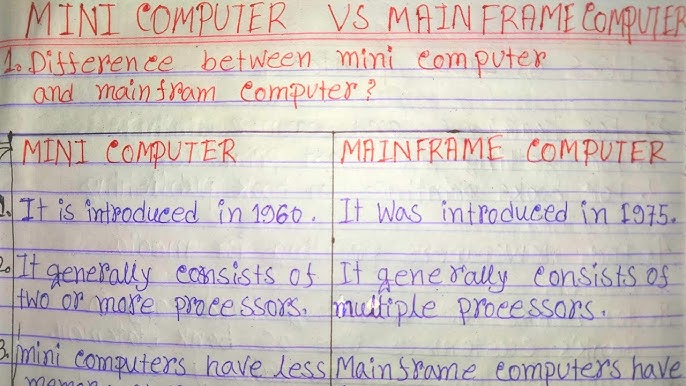 MINI COMPUTER VS MAINFRAME COMPUTER
1. Difference between mini computer
and mainfram computer?
MINI COMPUTER
MAINFRAME COMPUTER
1. It is introduced in 1960.
It was introduced in 1975.
2. It generally consists of
two or more processors.
It generally consists of
multiple processors.
3. mini computers have less
Mainframe computers have